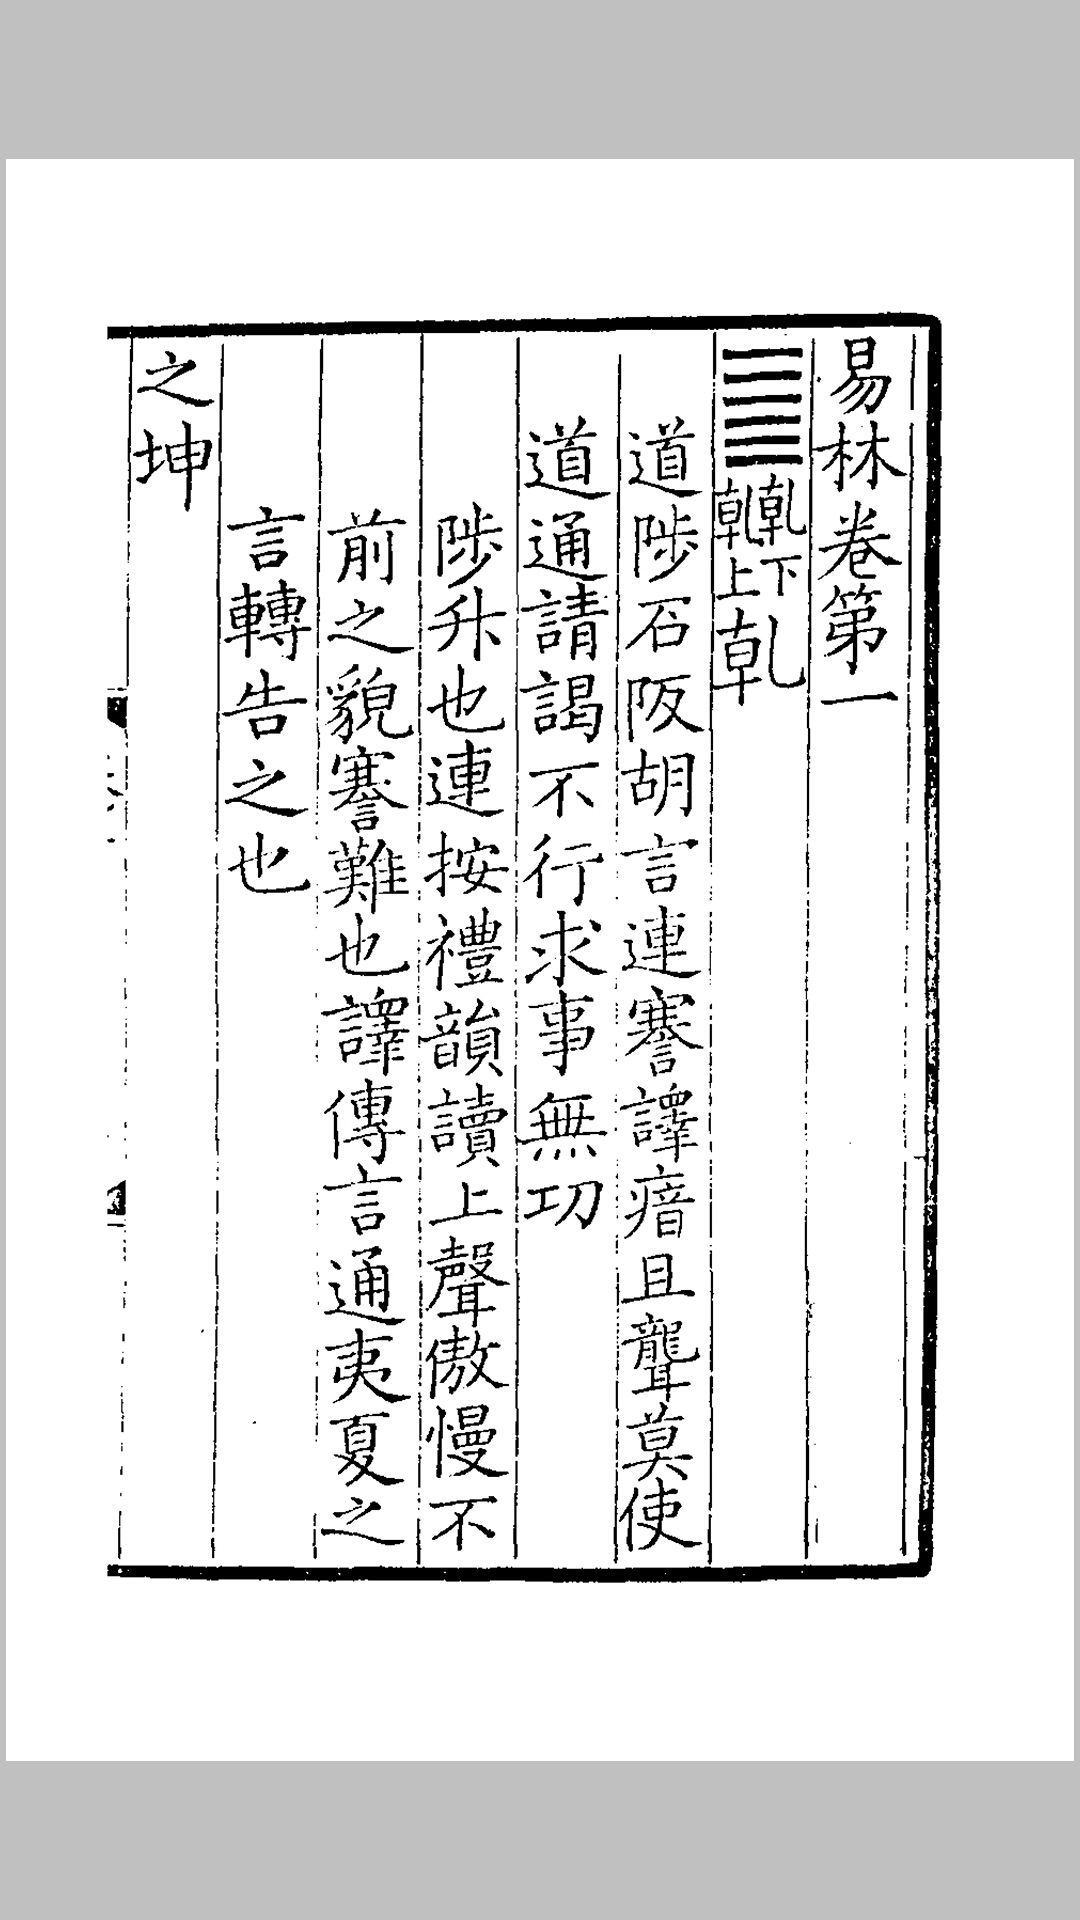 易林卷第一
乾下乾上乾
道陟石阪胡言連謇譯瘖且聾莫使
道通請謁不行求事無功
陟升也連按禮韻讀上聲傲慢不
前之貌謇難也譯傳言通夷夏之
言轉告之也
之坤